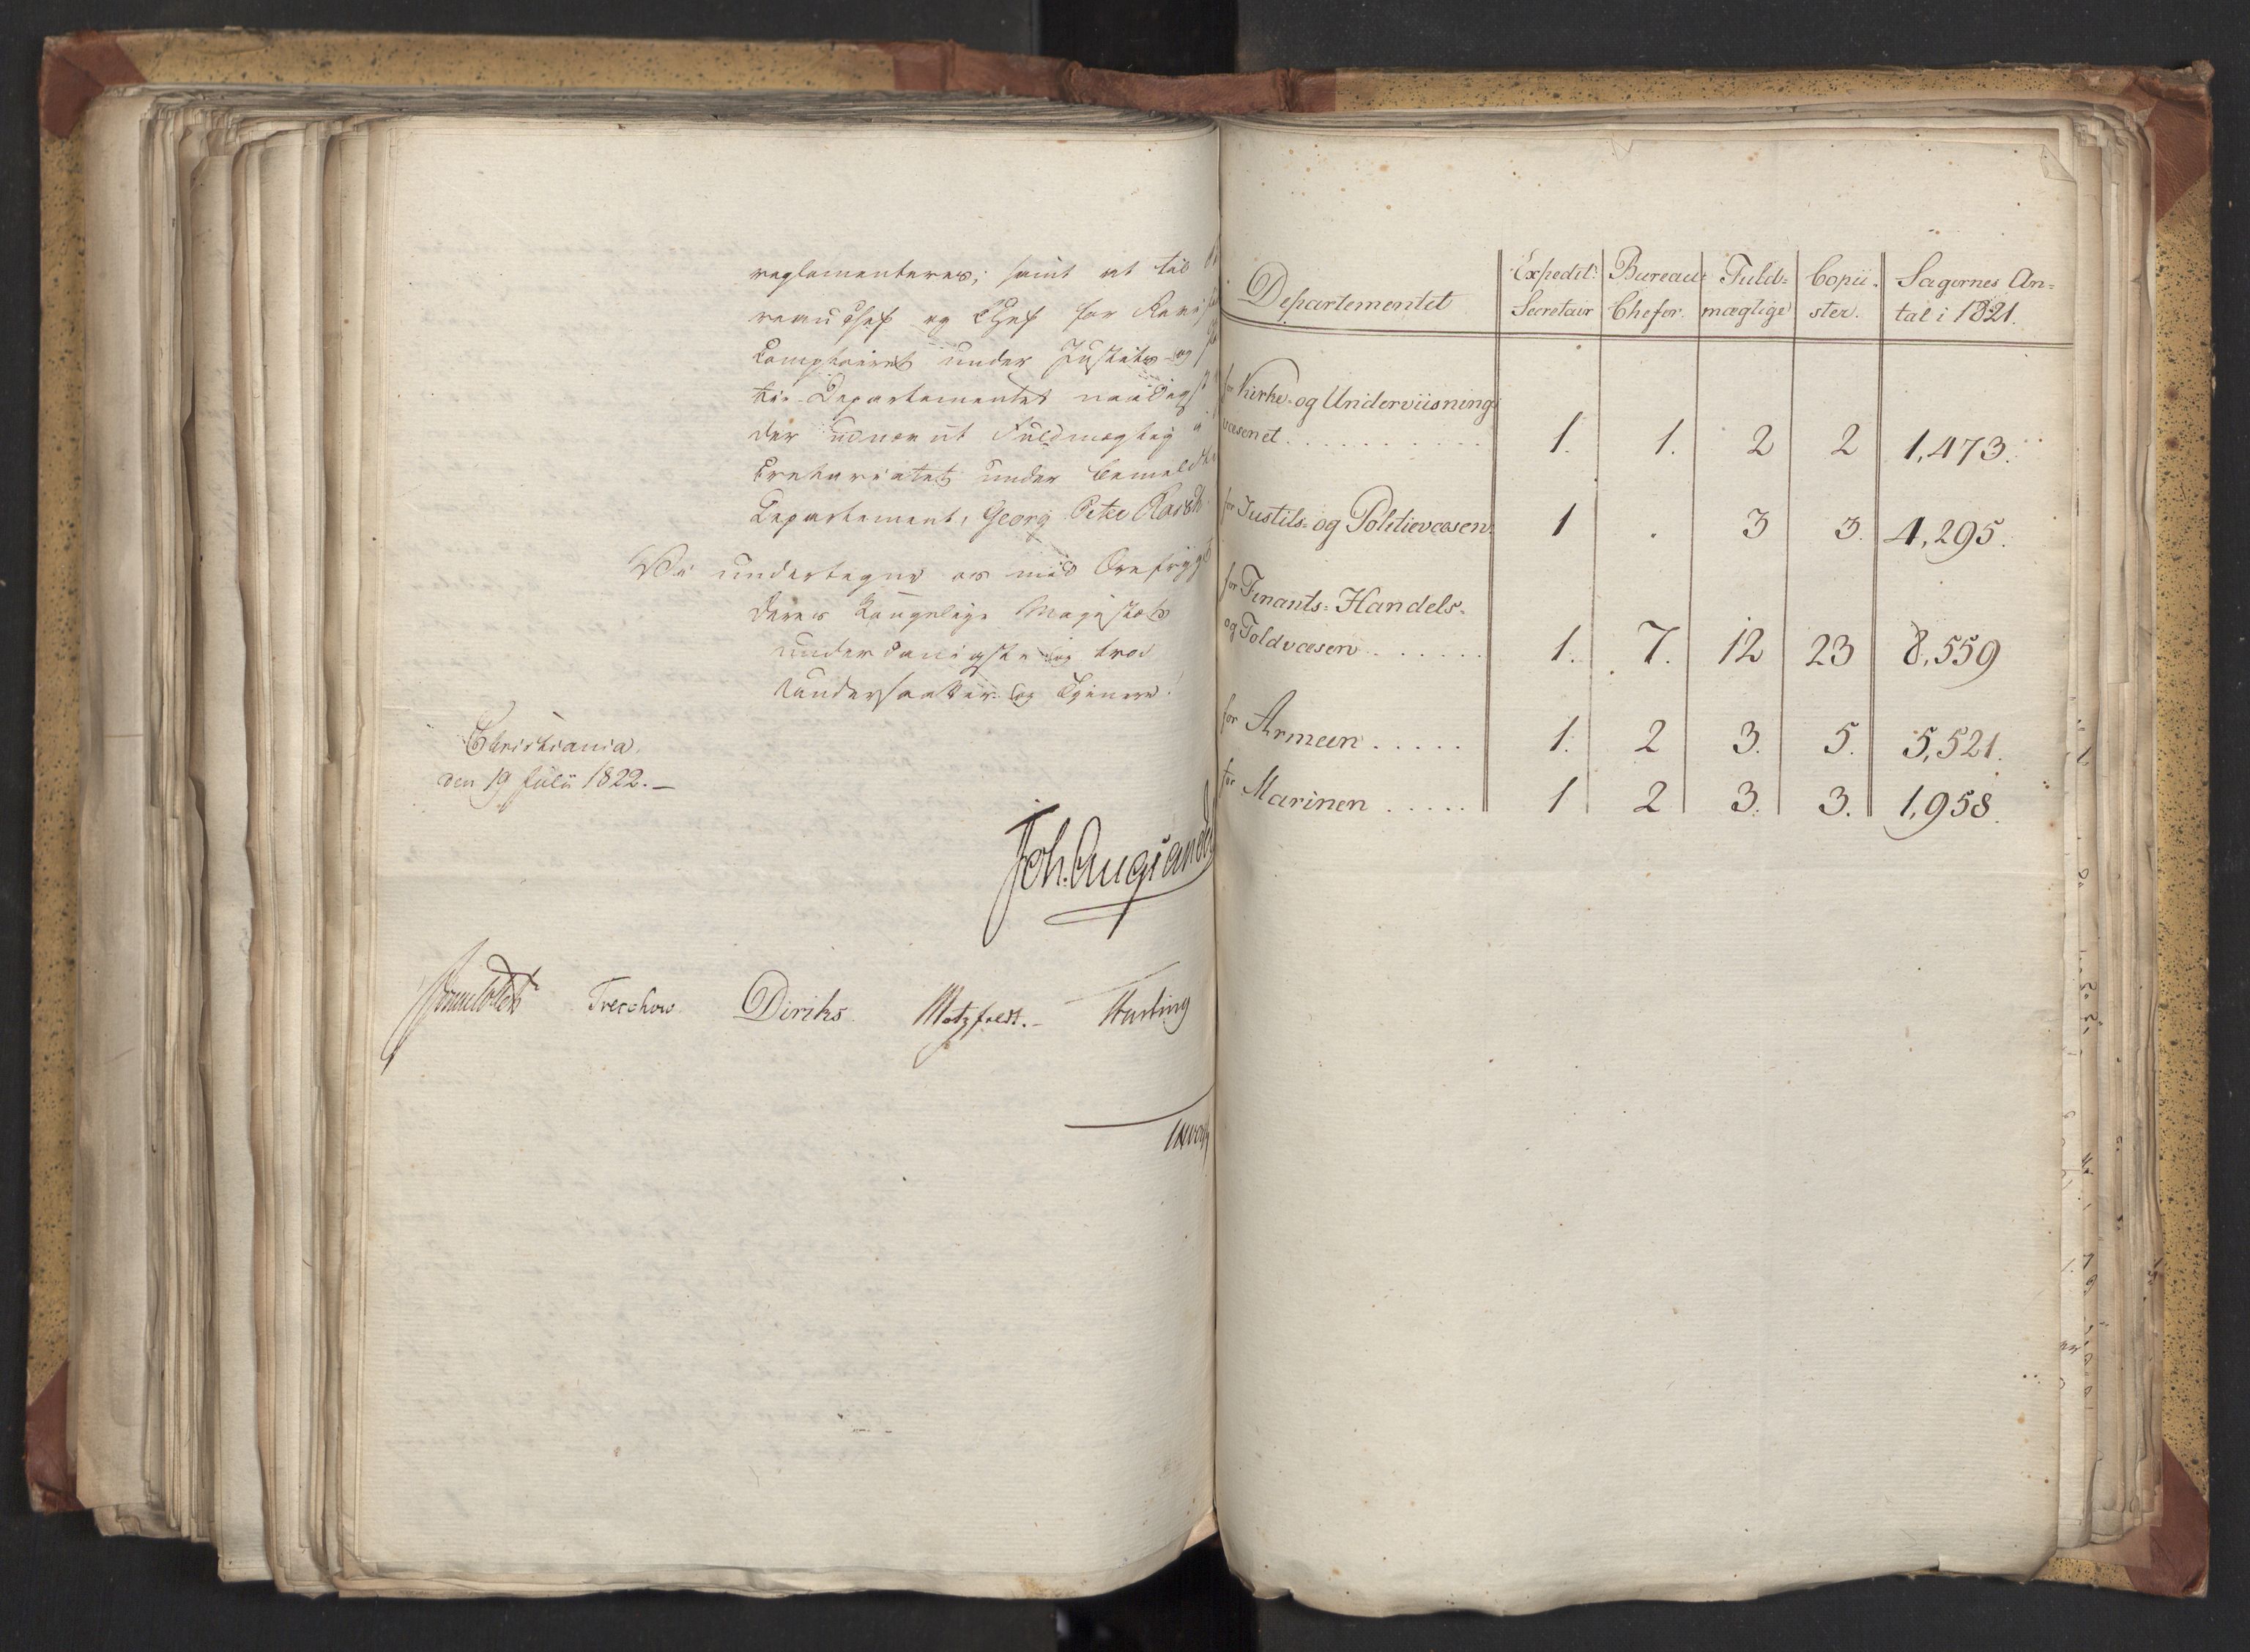 reglementeres; samt at til
reauchef og Chef for
Comptoiret under Justits- og
tie-Departementet naadigst
der udnævnt Fuldmægtig
cretariatet under bemeldte
Departement, Georg Peter
Vi undertegne os med Ærefrygt
Deres Kongelige Majestæts
underdanigste og troe
Undersaatter og Tjenere.
Christiania,
den 19 Julii 1822. –
Joh. Aug. Sandels
Sommerhielm Treschow. Diriks. Motzfeldt. – Hasting
Departementet
Expedit: Secretair
Bureau: Chefer.
Fuld: mægtige
Copii: ster.
Sagernes An: tal i 1821.
for Kirke- og Underviisnings
væsenet . . . . . . . . . . 1. 1. 2 2 1,473.
for Justits- og Politievæsen. 1 . 3 3. 4,295.
for Finants- Handels-
og Toldvæsen . . . . . . . 1. 7. 12 23 8,559
for Armeen . . . . . 1. 2 3. 5. 5,521.
for Marinen . . . . . 1 2 3. 3. 1,958.